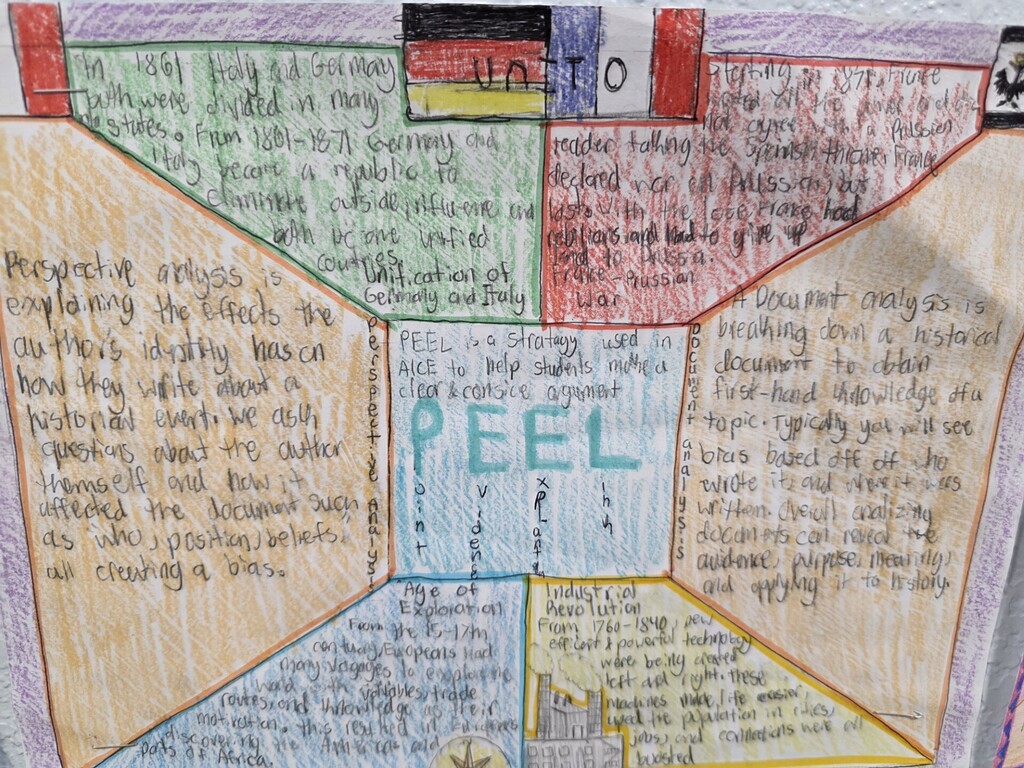 UNITO
In 1861 Italy and Germany
both were divided in many
states. From 1861-1871 Germany and
Italy became a republic to
eliminate outside influence and
both become unified
countries.
Unification of
Germany and Italy
Starting in 1871, France
all the power and
not agree with a Prussian
leader taking the Spanish throne, France
declared war on Prussia, but
lost. With the lose France had
rebllions and had to give up
land to Prussia.
France-Prussian
War
Perspective analysis is
explaining the effects the
author's identity has on
how they write about a
historical event. We ask
questions about the author
themself and how it
affected the document such
as who, position, beliefs,
all creating a bias.
Perspective Analysis
PEEL is a stratagy used in
AICE to help students make a
clear & consice argument
PEEL
Point
Evidense
Explantn
Link
Document analysis
A Document analysis is
breaking down a historical
document to obtain
first-hand knowledge of a
topic. Typically you will see
bias based off off who
wrote it, and where it was
written. Overall analizing
documents can reveal the
audience, purpose, meaning,
and applying it to history.
Age of
Exploration
From the 15-17th
century, Europeans had
many voyages to explore the
world with valuables, trade
routes, and knowledge as their
motivation. This resulted in Europeans
discovering the Americas and
parts of Africa.
Industrial
Revolution
From 1760-1840, new
efficent & powerful technology
were being created
left and right. These
machines make life easier,
used the population in cities,
jobs, and connections were all
boosted